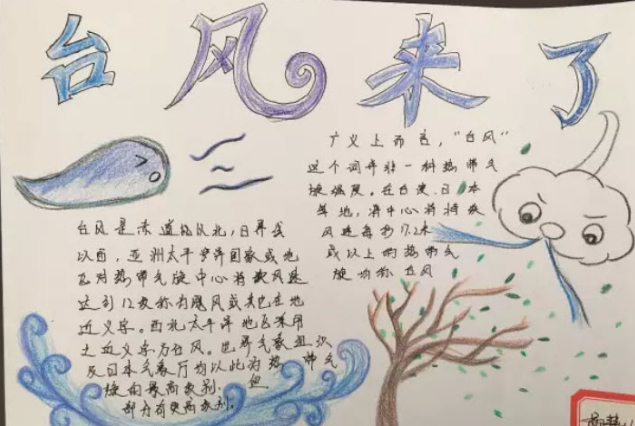 台风来了
广义上而言，"台风"
这个词并非一种热带气
旋强度。在台湾、日本
等地，将中心持续
风速每秒17.2米
或以上的热带气
旋均称台风
台风是赤道以北，日界线
以西，亚洲太平洋国家或地
区对热带气旋中心持续风速
达到12级称有飓风或其他在地
近义字。西北太平洋地区采用
之近义字为台风。世界气象组织
及日本气象厅均以此为热带气
旋的最高级别。但
部分有更高级别。